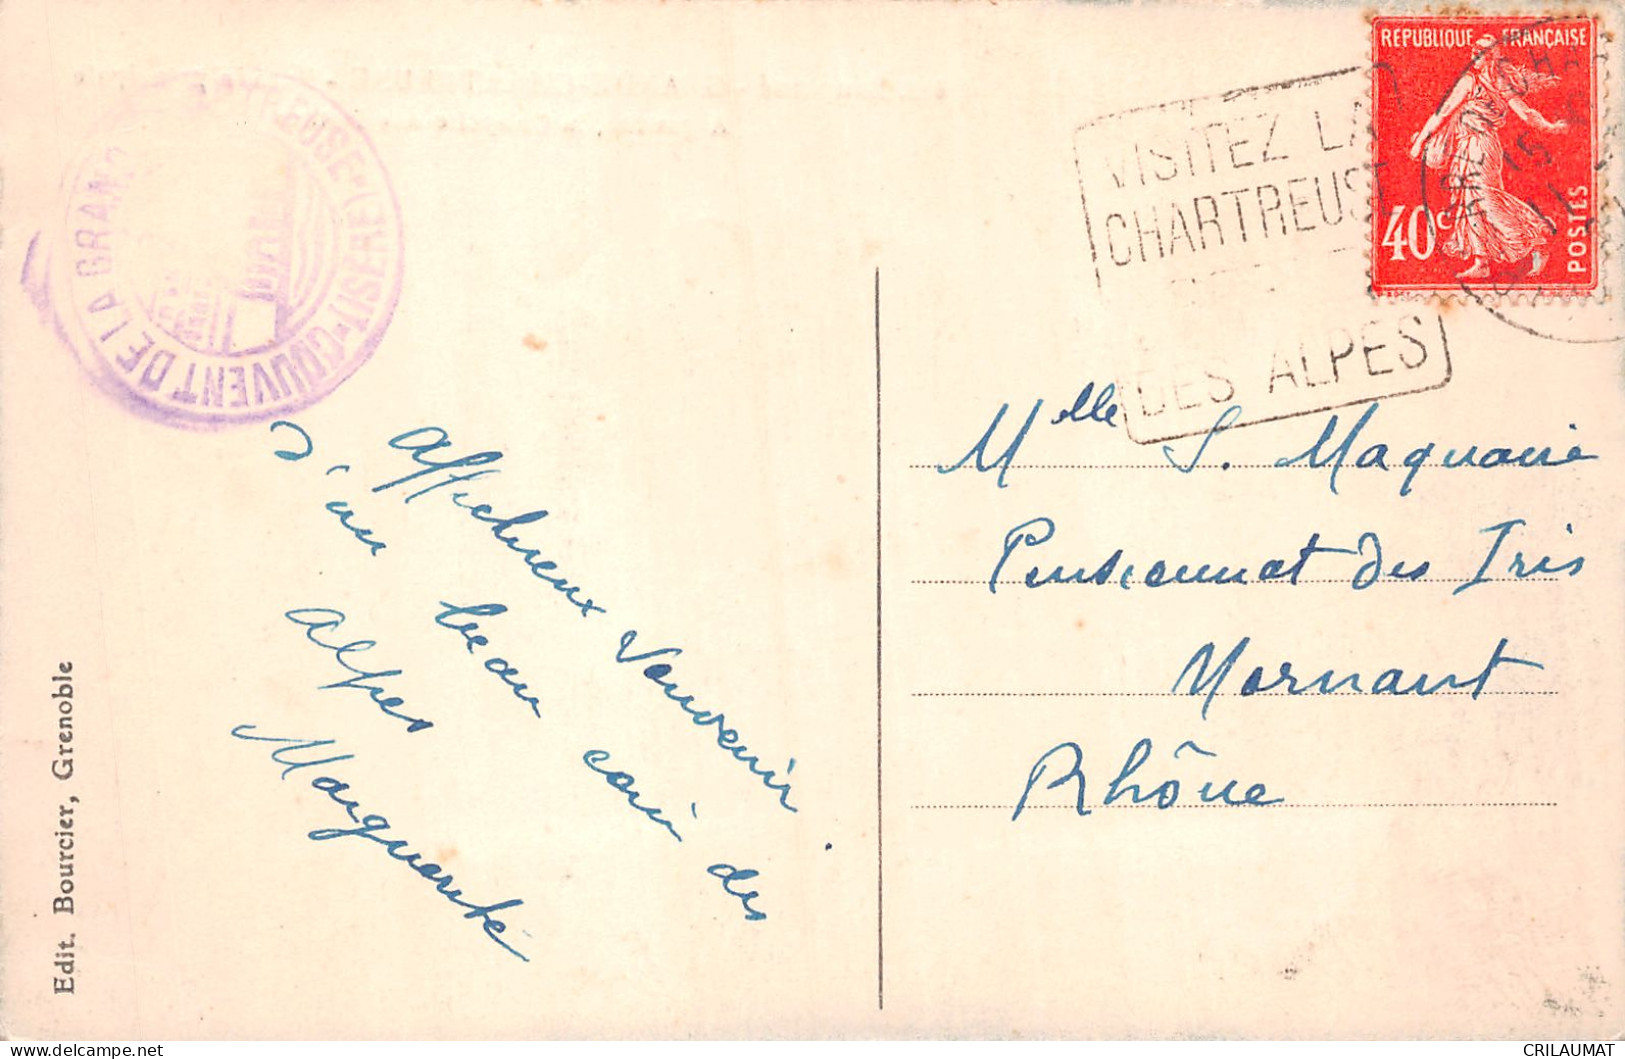 COUVENT DE LA GRANDE CHARTREUSE - (ISÈRE) -
VISITEZ LA
CHARTREUSE
DES ALPES
REPUBLIQUE FRANÇAISE
40c
POSTES
15
11
Affectueux souvenir
d'un beau coin des
Alpes
Marguerite
Mlle S. Maquaire
Pensionnat des Iris
Mornant
Rhône
Edit. Bourcier, Grenoble
CRILAUMAT